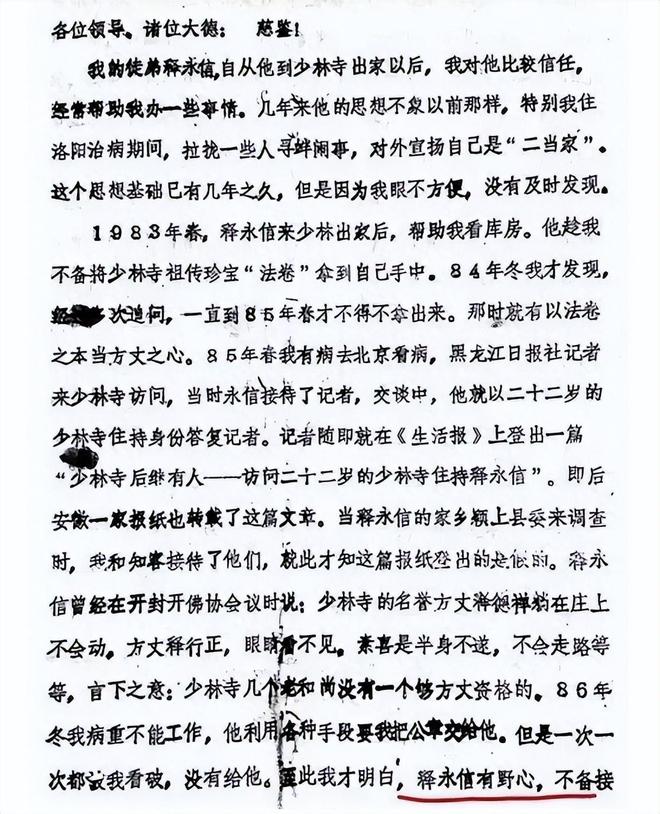 各位领导。诸位大德：　慈鉴！
我的徒弟释永信，自从他到少林寺出家以后，我对他比较信任，
经常帮助我办一些事情。几年来他的思想不象以前那样，特别我住
洛阳治病期间，拉拢一些人寻衅闹事，对外宣扬自己是“二当家”。
这个思想基础已有几年之久，但是因为我眼不方便，没有及时发现。
1983年春，释永信来少林出家后，帮助我看库房。他趁我
不备将少林寺祖传珍宝“法卷”拿到自己手中。84年冬我才发现，
次追问，一直到85年春才不得不拿出来。那时就有以法卷
之本当方丈之心。85年春我有病去北京看病，黑龙江日报社记者
来少林寺访问，当时永信接待了记者，交谈中，他就以二十二岁的
少林寺住持身份答复记者。记者随即就在《生活报》上登出一篇
“少林寺后继有人——访问二十二岁的少林寺住持释永信”。即后
安徽一家报纸也转载了这篇文章。当释永信的家乡颍上县委来调查
时，我和知客接待了他们，就此才知这篇报纸登出的是假的。释永
信曾经在开封开佛协会议时说：少林寺的名誉方丈释德禅躺在庄上
不会动，方丈释行正，眼睛看不见。素喜是半身不遂，不会走路等
等，言下之意：少林寺几个老和尚没有一个够方丈资格的。86年
冬我病重不能工作，他利用各种手段要我把公章交给他。但是一次一
次都被我看破，没有给他。至此我才明白，释永信有野心，不备接